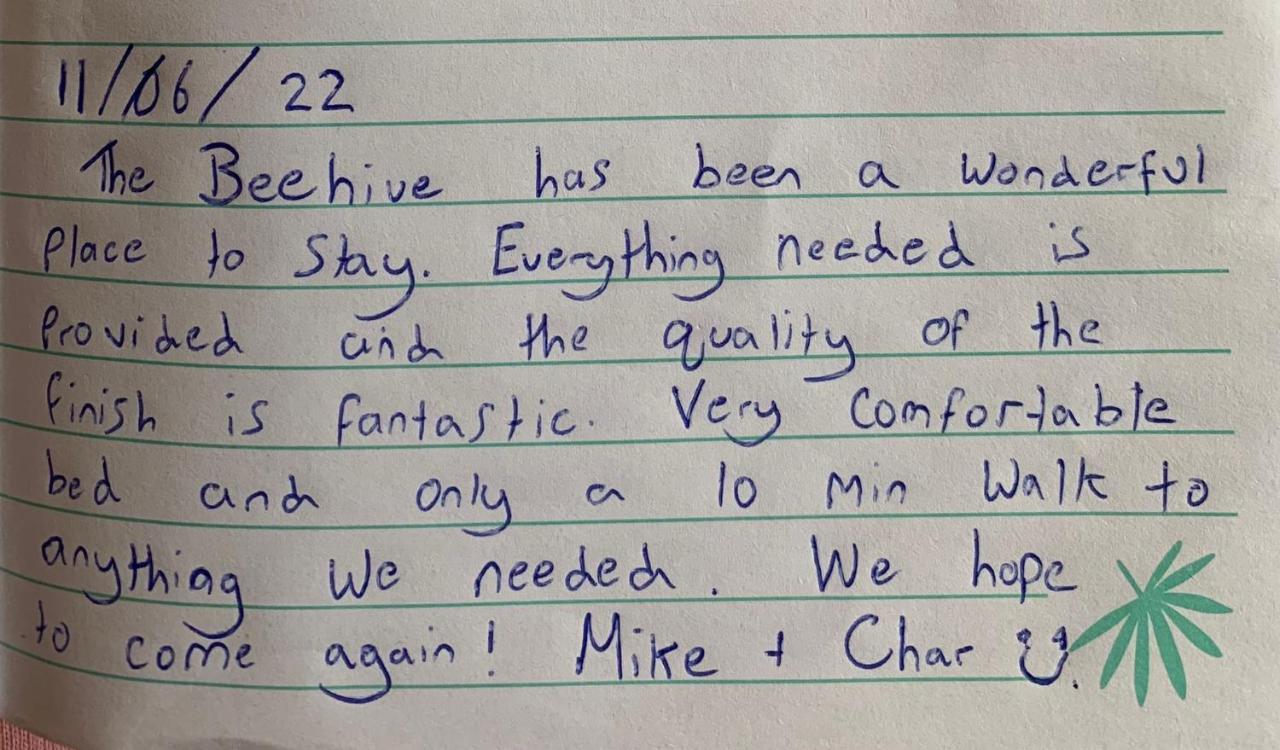 11/06/22
The Beehive has been a wonderful
Place to Stay. Everything needed is
Provided and the quality of the
finish is fantastic. Very Comfortable
bed and only a 10 Min Walk to
anything We needed. We hope
to come again! Mike + Char